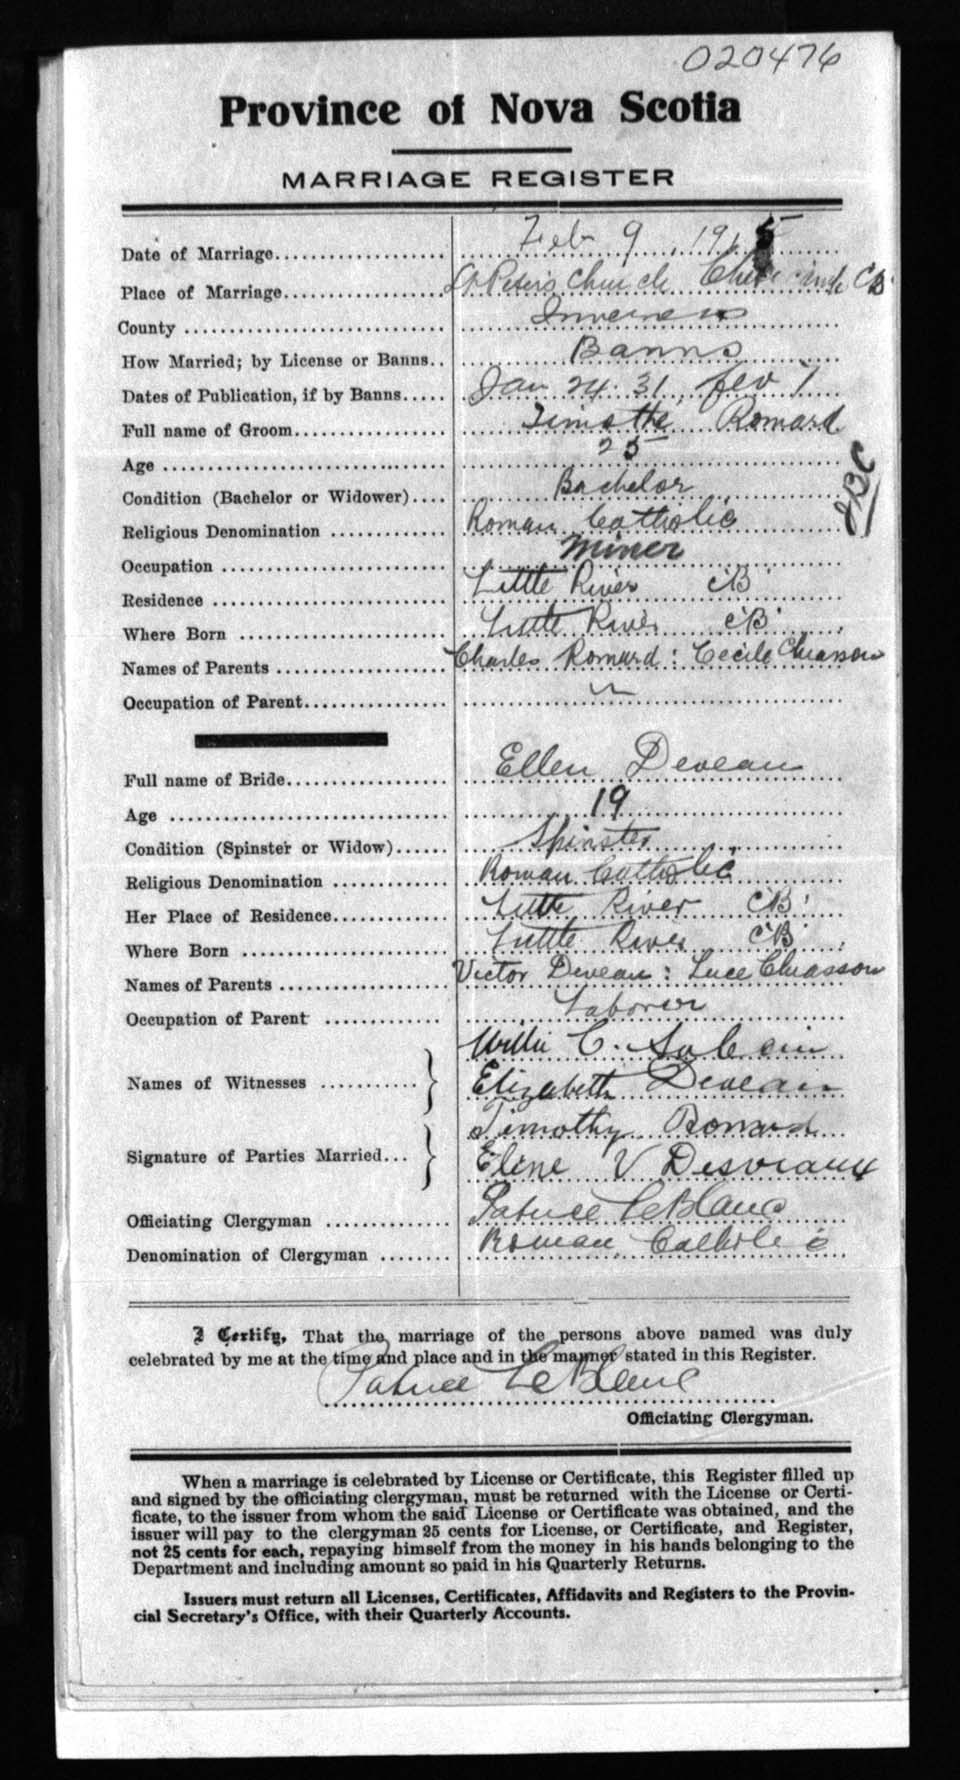 020476
Province of Nova Scotia
MARRIAGE REGISTER
Date of Marriage Feb 9, 1915
Place of Marriage St Peter's Church CB
County Inverness
How Married; by License or Banns Banns
Dates of Publication, if by Banns Jan 24. 31, fev
Full name of Groom Timothé Romard
Age 25
Condition (Bachelor or Widower) Bachelor
Religious Denomination Roman Catholic
Occupation Miner
Residence Little River CB
Where Born Little River CB
Names of Parents Charles Romard: Cecile Chiasson
Occupation of Parent
Full name of Bride Ellen Deveau
Age 19
Condition (Spinster or Widow) Spinster
Religious Denomination Roman Catholic
Her Place of Residence Little River CB
Where Born Little River CB
Names of Parents Victor Deveau: Luce Chiasson
Occupation of Parent Laborer
Willie C.
Names of Witnesses } Elizabeth Deveau
Timothy Romard
Signature of Parties Married } Eline V Desveaux
Officiating Clergyman Patrice LeBlanc
Denomination of Clergyman Roman Catholic
I Certify, That the marriage of the persons above named was duly
celebrated by me at the time and place and in the manner stated in this Register.
Patrice LeBlanc
Officiating Clergyman.
When a marriage is celebrated by License or Certificate, this Register filled up
and signed by the officiating clergyman, must be returned with the License or Certi-
ficate, to the issuer from whom the said License or Certificate was obtained, and the
issuer will pay to the clergyman 25 cents for License, or Certificate, and Register,
not 25 cents for each, repaying himself from the money in his hands belonging to the
Department and including amount so paid in his Quarterly Returns.
Issuers must return all Licenses, Certificates, Affidavits and Registers to the Provin-
cial Secretary's Office, with their Quarterly Accounts.